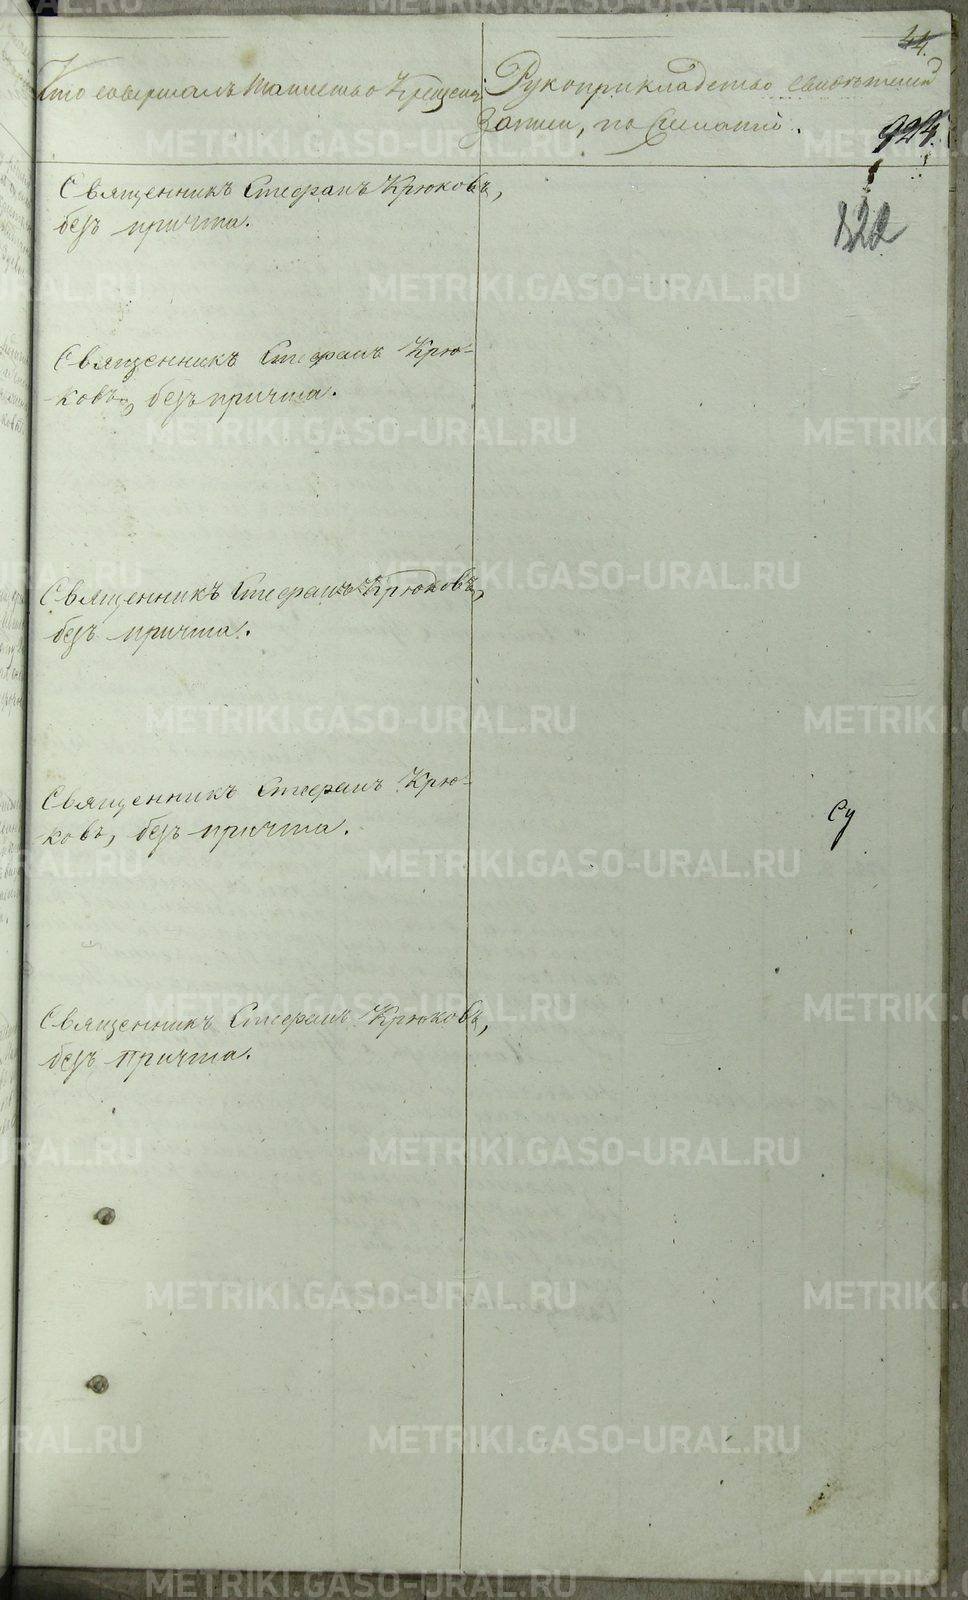 44.
Кто совершалъ таинство Крещенія
Рукоприкладство свидѣтелей
записи, по желанію.
924.
322
Священникъ Стефанъ Крюковъ,
безъ причта.
Священникъ Стефанъ Крю-
ковъ, безъ причта.
Священникъ Стефанъ Крюковъ,
безъ причта.
Священникъ Стефанъ Крю-
ковъ, безъ причта.
Су
Священникъ Стефанъ Крюковъ,
безъ причта.
METRIKI.GASO-URAL.RU